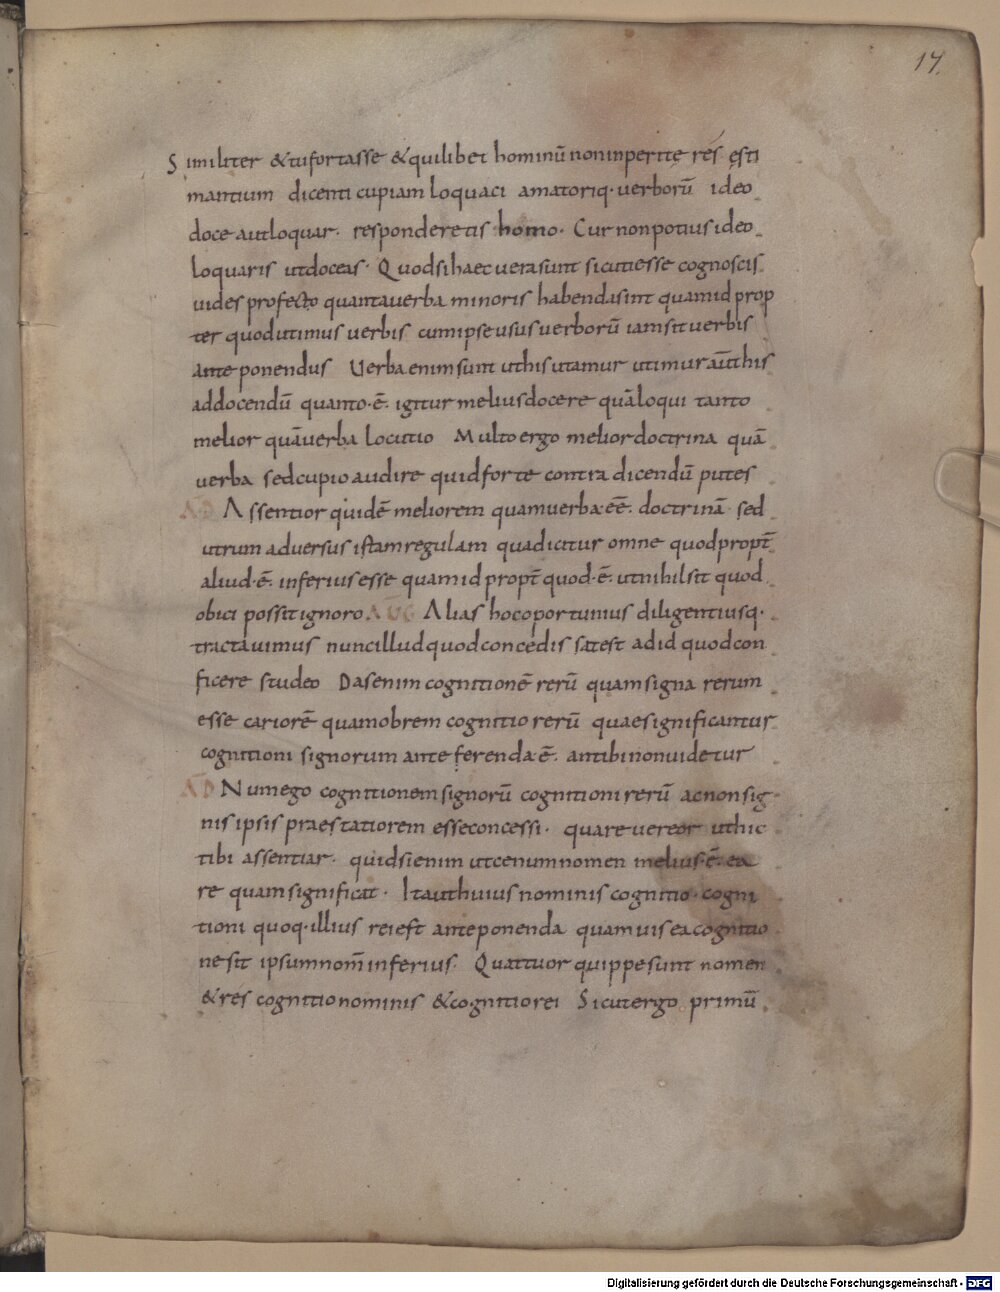 17.
Similiter & tu fortasse & quilibet hominū non inperite res esti
mantium dicenti cupiam loquaci amatoriq· verborū ideo
doce aut loquar· responderetis homo· Cur non potius ideo
loquaris ut doceas· Quod si haec vera sunt sicuti esse cognoscis
vides profecto quanta verba minoris habenda sint quam id prop
ter quod utimur verbis cum ipse usus verborū iam sit verbis
ante ponendus Verba enim sunt ut his utamur utimur aūt his
ad docendū quanto·ē· igitur melius docere quā loqui tanto
melior quā verba locutio Multo ergo melior doctrina quā
verba sed cupio audire quid forte contra dicendū putes
AD Assentior quidē meliorem quam verba·eē· doctrinā· sed
utrum adversus istam regulam qua dicitur omne quod propt̄
aliud·ē· inferius esse quam id propt̄ quod·ē· ut nihil sit quod
obici possit ignoro AUG Alias hoc oportunius diligentiusq·
tractavimus nunc illud quod concedis sat est ad id quod con
ficere studeo Das enim cognitionē rerū quam signa rerum
esse cariorē quamobrem cognitio rerū quae significantur
cognitioni signorum ante ferenda·ē· an tibi non videtur
AD Num ego cognitionem signorū cognitioni rerū ac non sig
nis ipsis praestatiorem esse concessi· quare vereor ut hic
tibi assentiar· quid si enim ut cenum nomen melius·ē· ea
re quam significat· Ita ut huius nominis cognitio· cogni
tioni quoq· illius rei est anteponenda quamvis ea cognitio
ne sit ipsum nom̄ inferius· Quattuor quippe sunt nomen
& res cognitio nominis & cognitio rei Sicut ergo primū
Digitalisierung gefördert durch die Deutsche Forschungsgemeinschaft - DFG